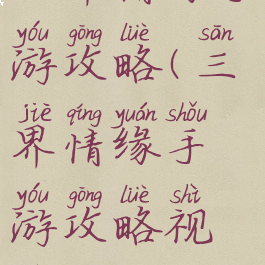 yóu gōng lüè sān
游攻略(三
jiè qíng yuán shǒu
界情缘手
yóu gōng lüè shì
游攻略视